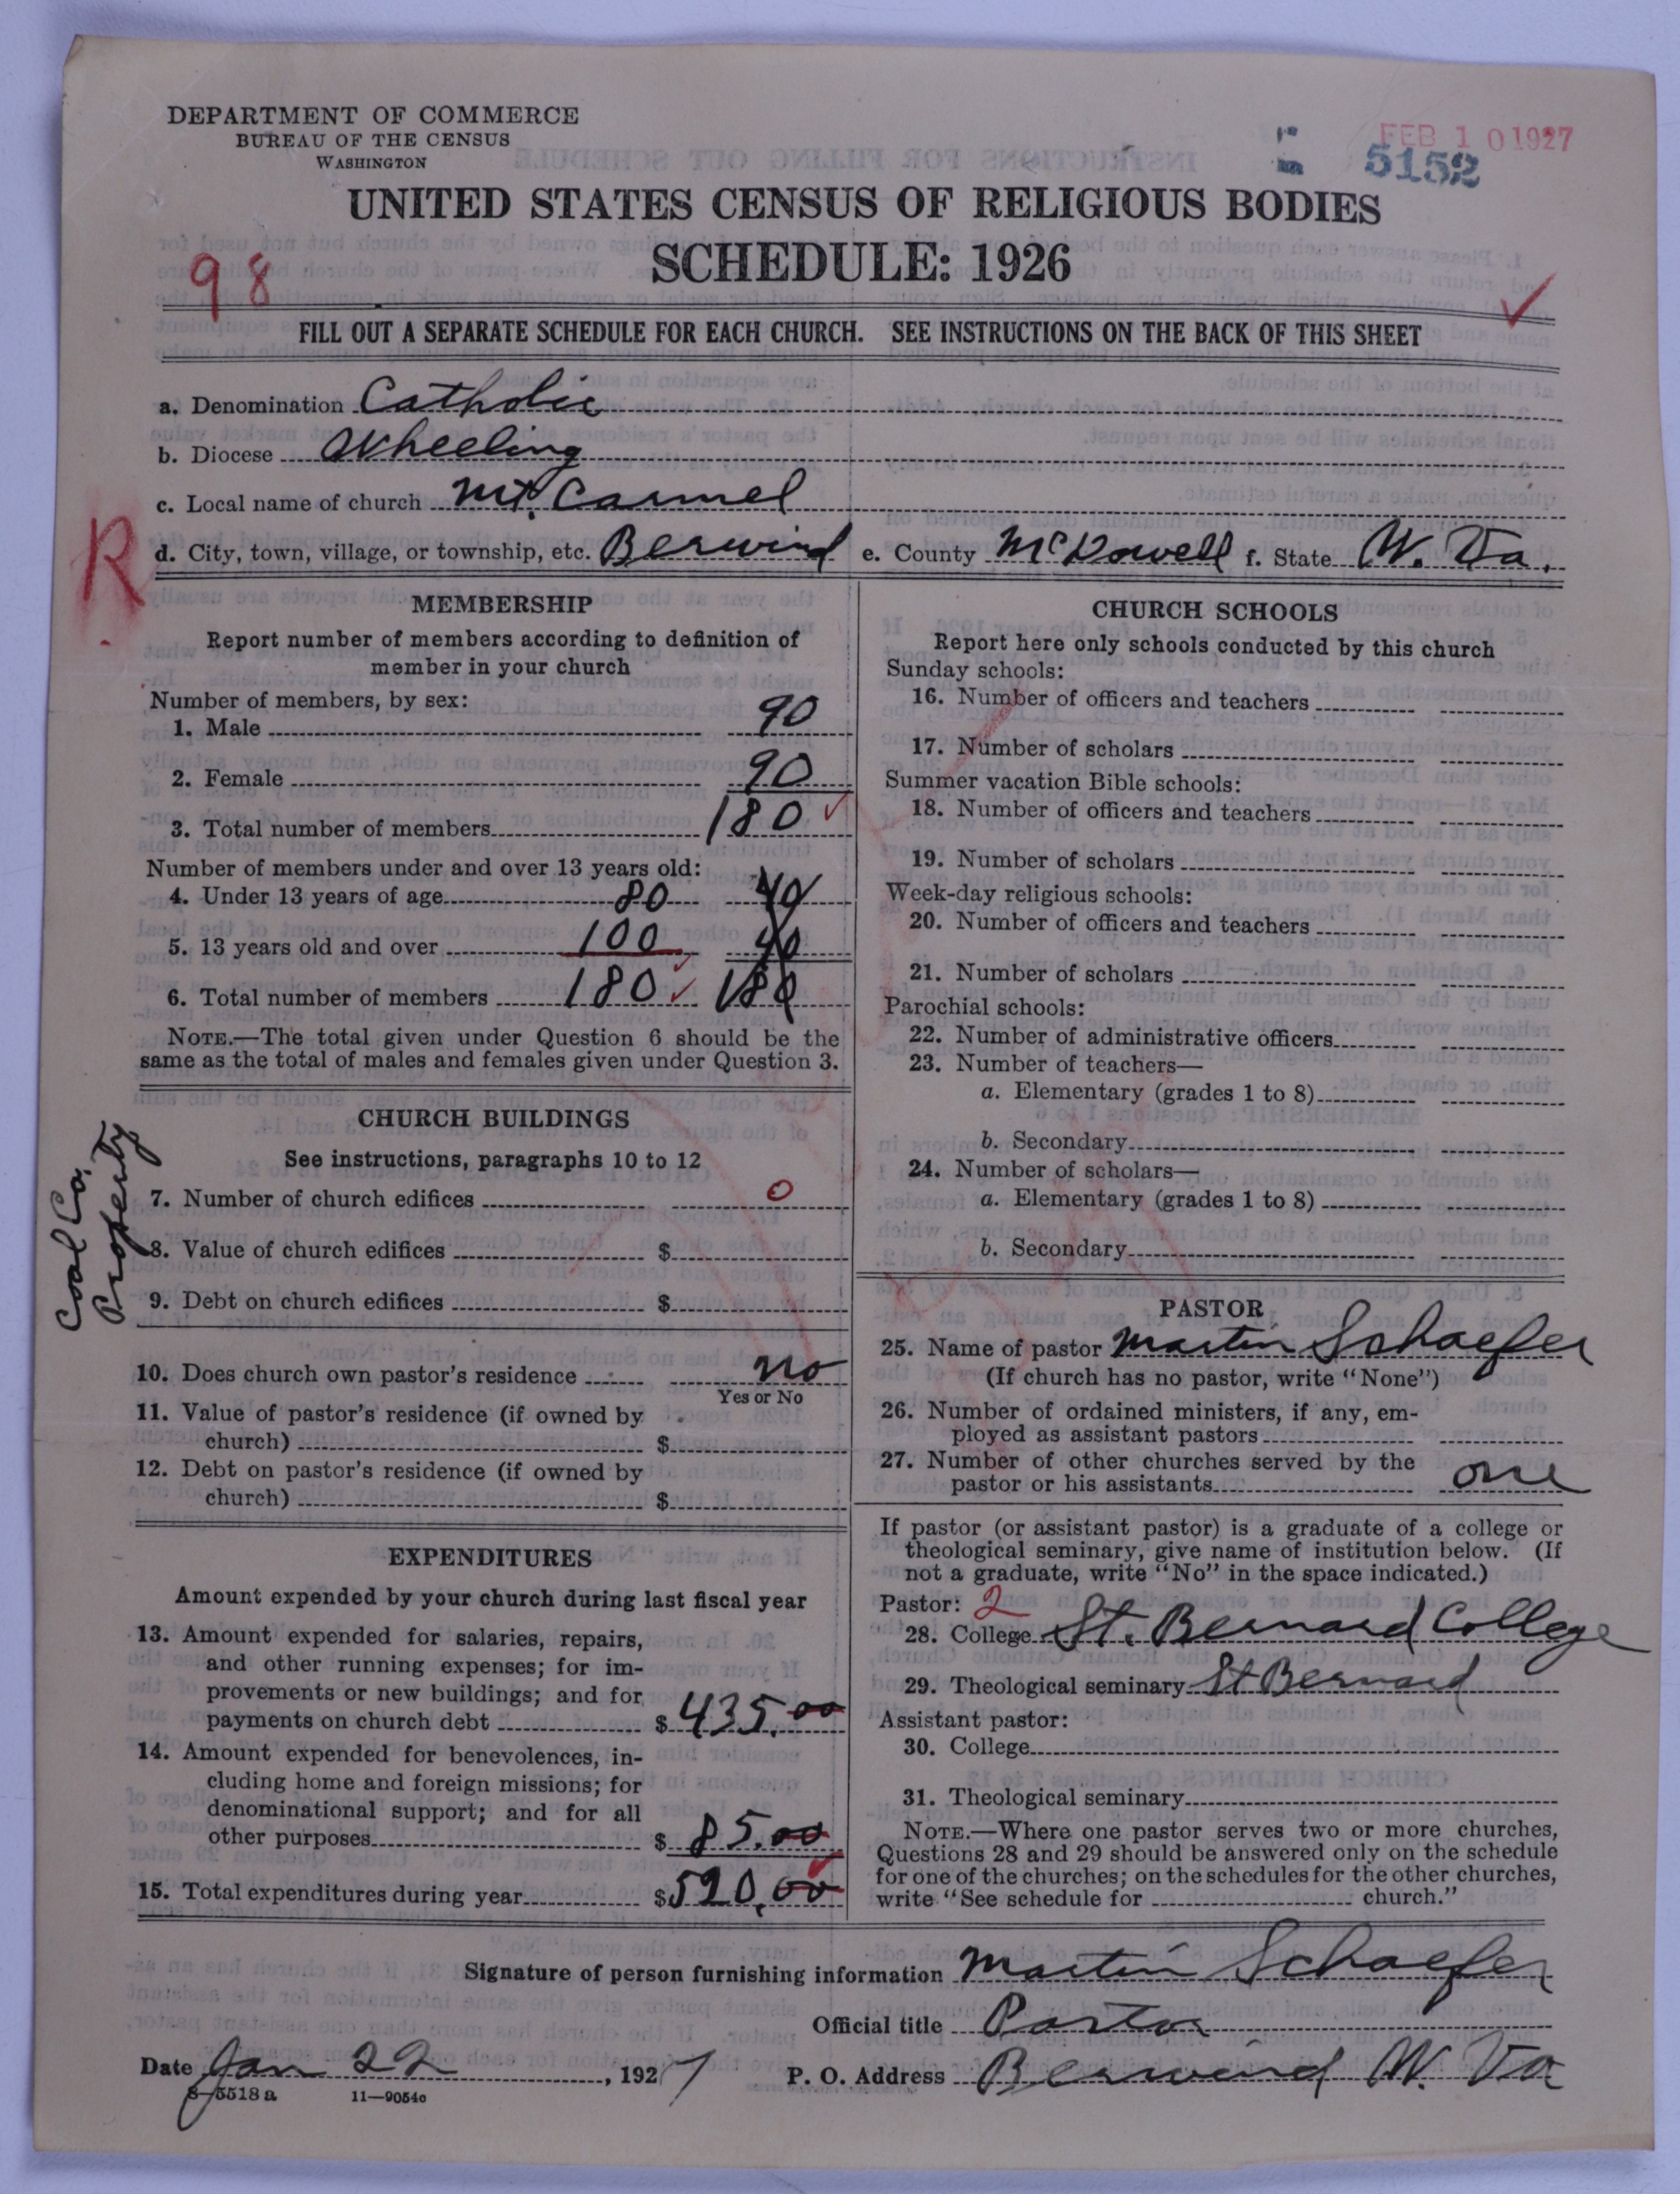 DEPARTMENT OF COMMERCE
BUREAU OF THE CENSUS
WASHINGTON
FEB 10 1927
5152
UNITED STATES CENSUS OF RELIGIOUS BODIES
SCHEDULE: 1926
98
FILL OUT A SEPARATE SCHEDULE FOR EACH CHURCH. SEE INSTRUCTIONS ON THE BACK OF THIS SHEET
a. Denomination Catholic
b. Diocese Wheeling
c. Local name of church Mt. Carmel
R
d. City, town, village, or township, etc. Berwind e. County McDowell f. State W. Va.
MEMBERSHIP
Report number of members according to definition of
member in your church
Number of members, by sex:
1. Male 90
2. Female 90
3. Total number of members 180
Number of members under and over 13 years old:
4. Under 13 years of age 80 40
5. 13 years old and over 100 40
6. Total number of members 180 180
NOTE.—The total given under Question 6 should be the
same as the total of males and females given under Question 3.
CHURCH BUILDINGS
See instructions, paragraphs 10 to 12
Coal Co.
Property
7. Number of church edifices 0
8. Value of church edifices $
9. Debt on church edifices $
10. Does church own pastor's residence no
Yes or No
11. Value of pastor's residence (if owned by
church) $
12. Debt on pastor's residence (if owned by
church) $
EXPENDITURES
Amount expended by your church during last fiscal year
13. Amount expended for salaries, repairs,
and other running expenses; for im-
provements or new buildings; and for
payments on church debt $ 435.00
14. Amount expended for benevolences, in-
cluding home and foreign missions; for
denominational support; and for all
other purposes $ 85.00
15. Total expenditures during year $ 520.00
CHURCH SCHOOLS
Report here only schools conducted by this church
Sunday schools:
16. Number of officers and teachers
17. Number of scholars
Summer vacation Bible schools:
18. Number of officers and teachers
19. Number of scholars
Week-day religious schools:
20. Number of officers and teachers
21. Number of scholars
Parochial schools:
22. Number of administrative officers
23. Number of teachers—
a. Elementary (grades 1 to 8)
b. Secondary
24. Number of scholars—
a. Elementary (grades 1 to 8)
b. Secondary
PASTOR
25. Name of pastor Martin Schaefer
(If church has no pastor, write "None")
26. Number of ordained ministers, if any, em-
ployed as assistant pastors
27. Number of other churches served by the
pastor or his assistants one
If pastor (or assistant pastor) is a graduate of a college or
theological seminary, give name of institution below. (If
not a graduate, write "No" in the space indicated.)
Pastor: 2
28. College St. Bernard College
29. Theological seminary St Bernard
Assistant pastor:
30. College
31. Theological seminary
NOTE.—Where one pastor serves two or more churches,
Questions 28 and 29 should be answered only on the schedule
for one of the churches; on the schedules for the other churches,
write "See schedule for church."
Signature of person furnishing information Martin Schaefer
Official title Pastor
Date Jan 22, 1927 P. O. Address Berwind W. Va
8—5518 a 11—9054a